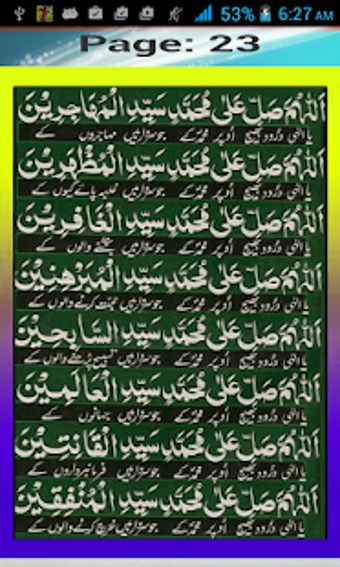 53% 6:27 AM
Page: 23
اَللّٰهُمَّ صَلِّ عَلٰى مُحَمَّدٍ سَيِّدِ الْمُهَاجِرِيْنَ
یا الٰہی درود بھیج اُوپر محمدؐ کے جو سردار ہیں مہاجروں کے
اَللّٰهُمَّ صَلِّ عَلٰى مُحَمَّدٍ سَيِّدِ الْمُظْهِرِيْنَ
یا الٰہی درود بھیج اُوپر محمدؐ کے جو سردار ہیں کے
اَللّٰهُمَّ صَلِّ عَلٰى مُحَمَّدٍ سَيِّدِ الْغَافِرِيْنَ
یا الٰہی درود بھیج اُوپر محمدؐ کے جو سردار ہیں بخشنے والوں کے
اَللّٰهُمَّ صَلِّ عَلٰى مُحَمَّدٍ سَيِّدِ الْمُبَرْهِنِيْنَ
یا الٰہی درود بھیج اُوپر محمدؐ کے جو سردار ہیں کرنے والوں کے
اَللّٰهُمَّ صَلِّ عَلٰى مُحَمَّدٍ سَيِّدِ السَّابِحِيْنَ
یا الٰہی درود بھیج اُوپر محمدؐ کے جو سردار ہیں تسبیح پڑھنے والوں کے
اَللّٰهُمَّ صَلِّ عَلٰى مُحَمَّدٍ سَيِّدِ الْعَالَمِيْنَ
یا الٰہی درود بھیج اُوپر محمدؐ کے جو سردار ہیں جہانوں کے
اَللّٰهُمَّ صَلِّ عَلٰى مُحَمَّدٍ سَيِّدِ الْقَانِتِيْنَ
یا الٰہی درود بھیج اُوپر محمدؐ کے جو سردار ہیں فرمانبرداروں کے
اَللّٰهُمَّ صَلِّ عَلٰى مُحَمَّدٍ سَيِّدِ الْمُنْفِقِيْنَ
یا الٰہی درود بھیج اُوپر محمدؐ کے جو سردار ہیں خرچ کرنے والوں کے